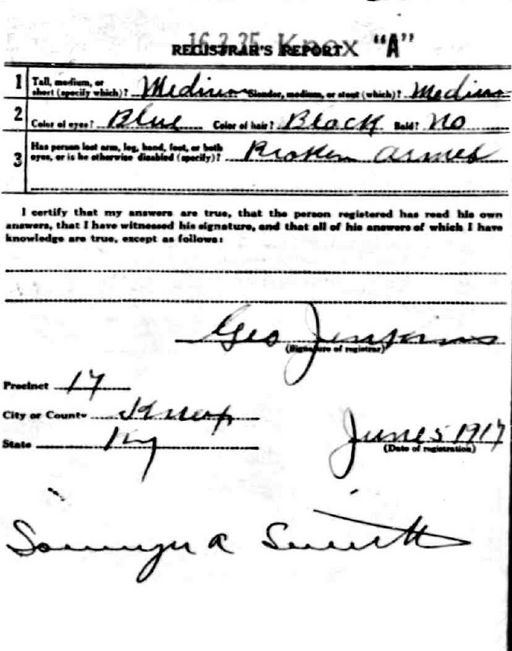 16-2-25 Knox "A"
REGISTRAR'S REPORT
1 Tall, medium, or short (specify which)? Medium Slender, medium, or stout (which)? Medium
2 Color of eyes? Blue Color of hair? Black Bald? No
3 Has person lost arm, leg, hand, foot, or both eyes, or is he otherwise disabled (specify)? Broken armes
I certify that my answers are true, that the person registered has read his own
answers, that I have witnessed his signature, and that all of his answers of which I have
knowledge are true, except as follows:
Geo Jenkins
(Signature of registrar)
Precinct 17
City or County Knox
State Ky
June 5 1917
(Date of registration)
Smith